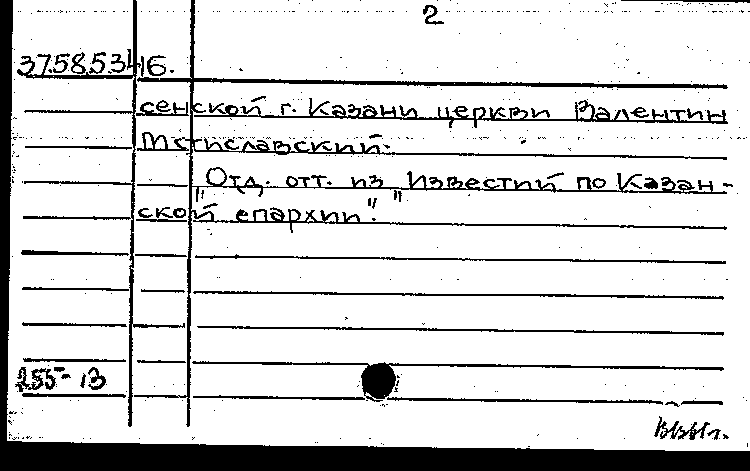 2
37585346.
сенской г. Казани церкви Валентин
Мстиславский.
"Отд. отт. из "Известий по Казан-
ской епархии"."
255-13